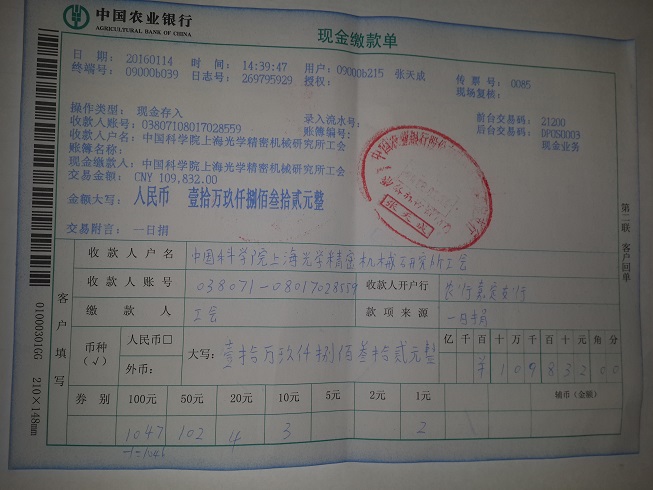 中国农业银行
AGRICULTURAL BANK OF CHINA
现金缴款单
日 期: 20160114 时 间: 14:39:47 用户: 09000b215 张天成 传 票 号: 0085
终端号: 09000b039 日志号: 269795929 授权: 现场复核:
操作类型: 现金存入 录入流水号: 前台交易码: 21200
收款人账号: 03807108017028559 账簿编号: 后台交易码: DPUS0003
收款人户名: 中国科学院上海光学精密机械研究所工会 现金业务
账簿名称:
现金缴款人: 中国科学院上海光学精密机械研究所工会
交易金额: CNY 109,832.00
金额大写: 人民币 壹拾万玖仟捌佰叁拾贰元整
交易附言: 一日捐
张天成
第二联 客户回单
收款人户名 中国科学院上海光学精密机械研究所工会
收款人账号 038071-08017028559 收款人开户行 农行嘉定支行
缴款人 工会 款项来源 一日捐
客户填写
币种(√) 人民币□ 大写: 壹拾万玖仟捌佰叁拾贰元整 亿千百十万千百十元角分
外币: ¥10983200
券别 100元 50元 20元 10元 5元 2元 1元 辅币(金额)
1047 102 4 3 2
-1=1046
0100030166 210×148mm